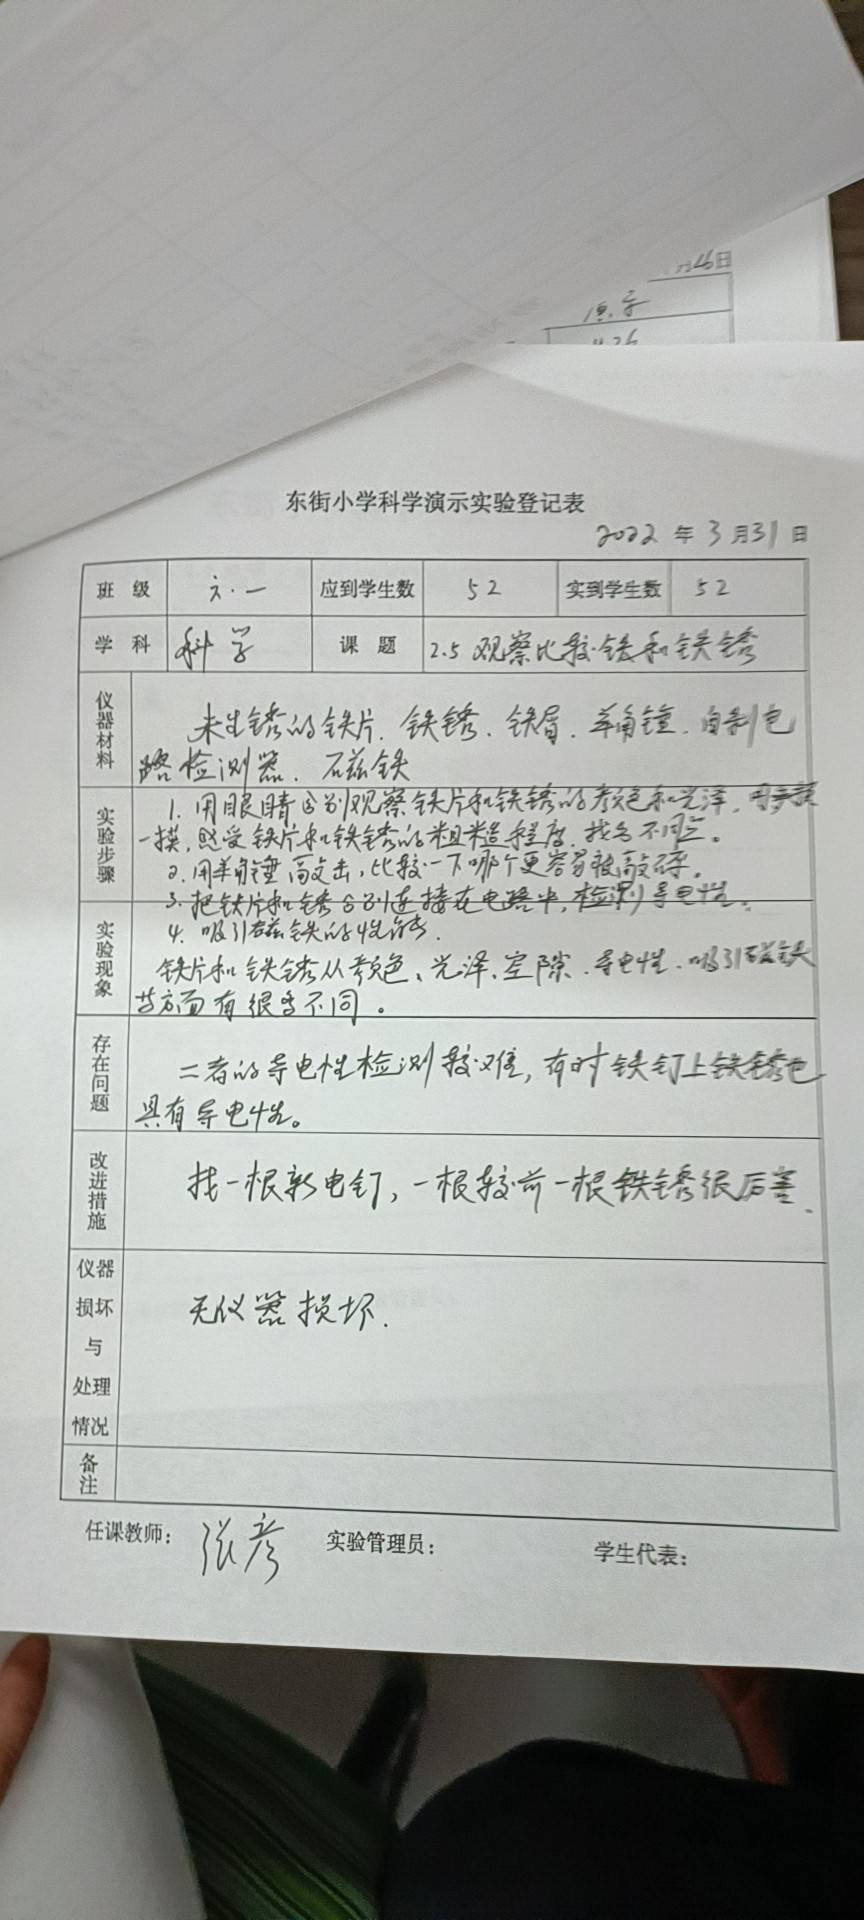 月26日
4.26
东街小学科学演示实验登记表
2022 年 3 月 31 日
班 级 六·一 应到学生数 52 实到学生数 52
学 科 科学 课 题 2.5 观察比较铁和铁锈
仪器材料 未生锈的铁片、铁锈、铁屑、羊角锤、自制电
路检测器、石磁铁
实验步骤 1. 用眼睛区别观察铁片和铁锈的颜色和光泽,用手摸
一摸,感受铁片和铁锈的粗糙程度,找出不同点。
2. 用羊角锤敲击,比较一下哪个更容易被敲碎。
3. 把铁片和锈分别连接在电路中,检测导电性。
4. 吸引磁铁的性能.
实验现象 铁片和铁锈从颜色、光泽、空隙、导电性、吸引磁铁
等方面有很多不同。
存在问题 二者的导电性检测较难,有时铁钉上铁锈也
具有导电性。
改进措施 找一根新电钉,一根较前一根铁锈很厉害.
仪器损坏与处理情况 无仪器损坏.
备注
任课教师: 张彦 实验管理员: 学生代表: